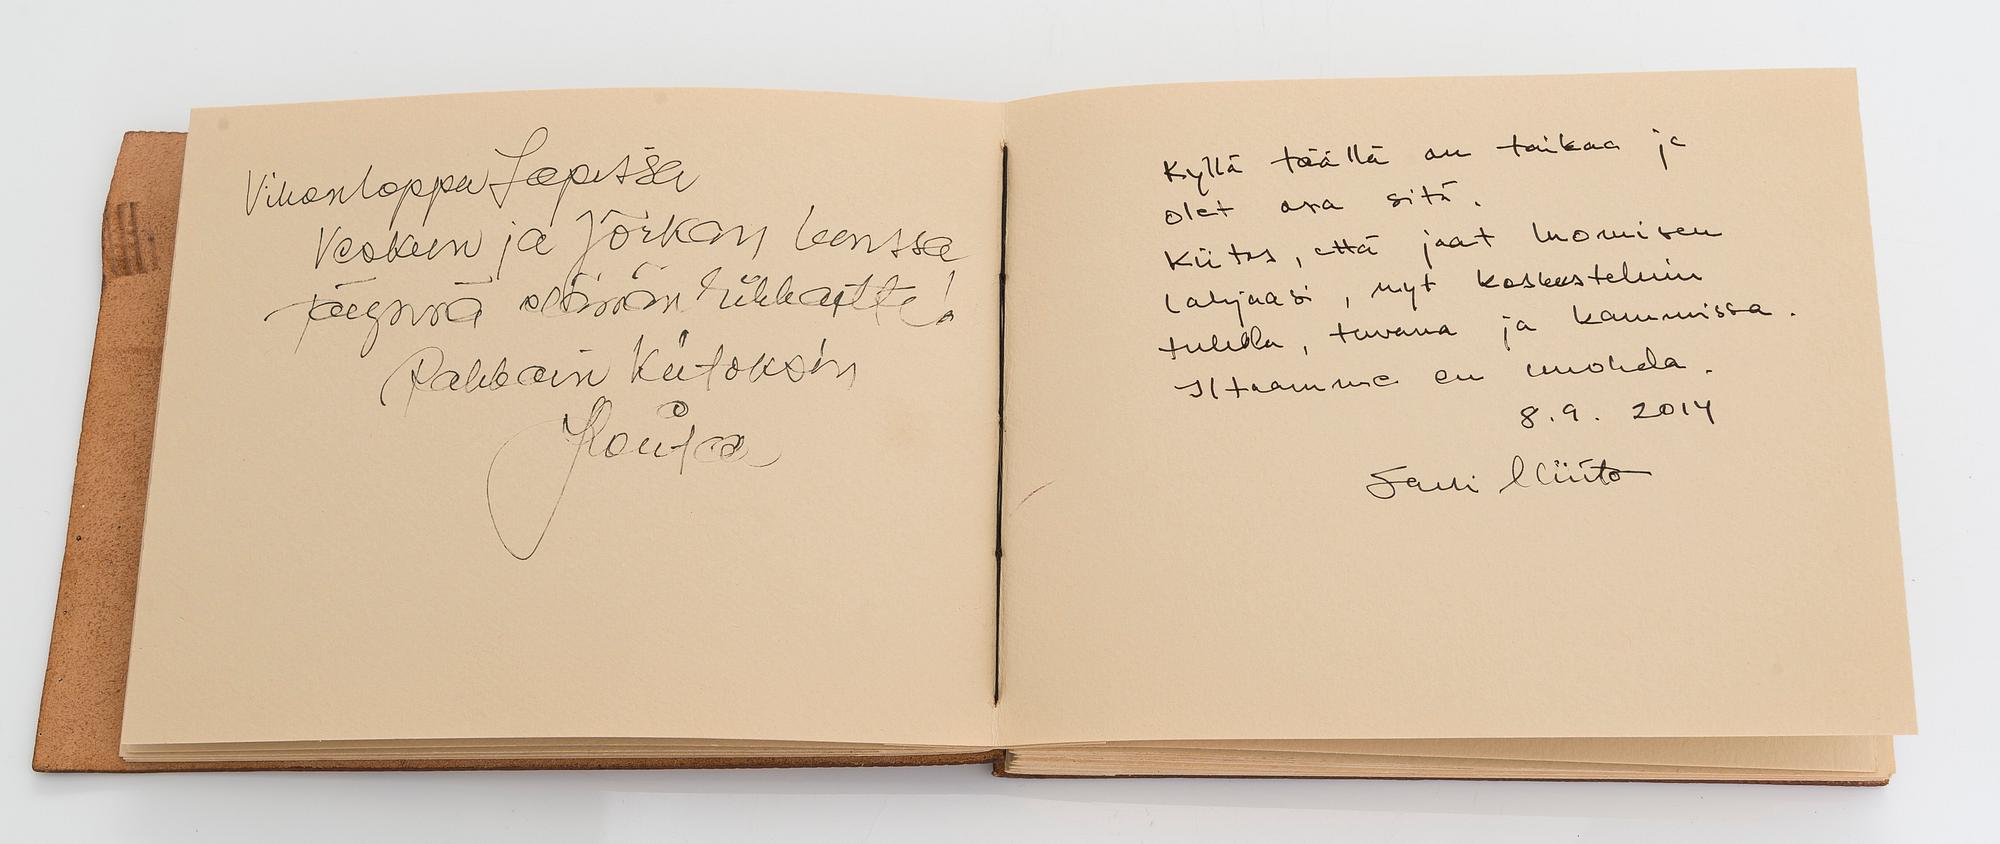 Viikonloppu Lapissa
Veskun ja Jörkan kanssa
täynnä elämän rikkautta!
Rakkain Kiitoksin
Kyllä täällä on taikaa ja
olet osa sitä.
Kiitos, että jaat luomisen
lahjaasi, nyt keskusteluin
tulilla, tuvana ja kammissa.
Iltaamme en unohda.
8.9. 2014